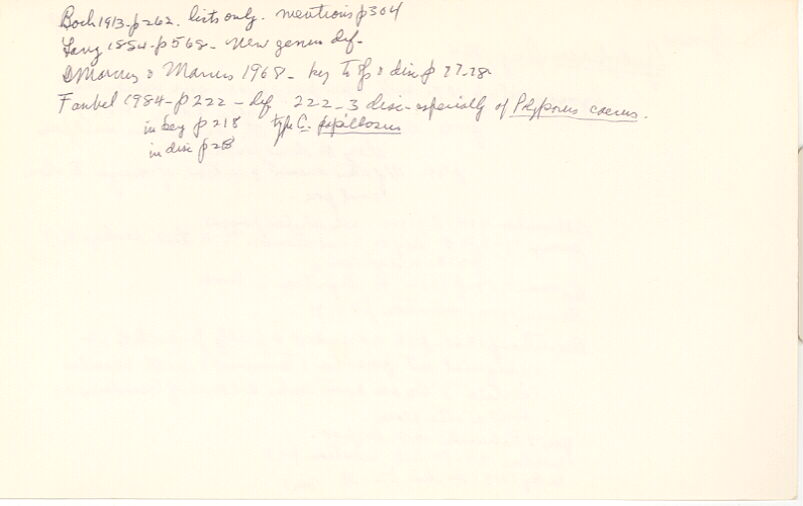 Bock 1913-p262. lists only. mentions p304
Lang 1884-p568- new genus def-
E Marcus & Marcus 1968- key to spp & disc p 77-78-
Faubel 1984-p222 - def 222-3 disc-especially of Polyporus caecus.
in key p 218 type C. papillosus
in disc p 28